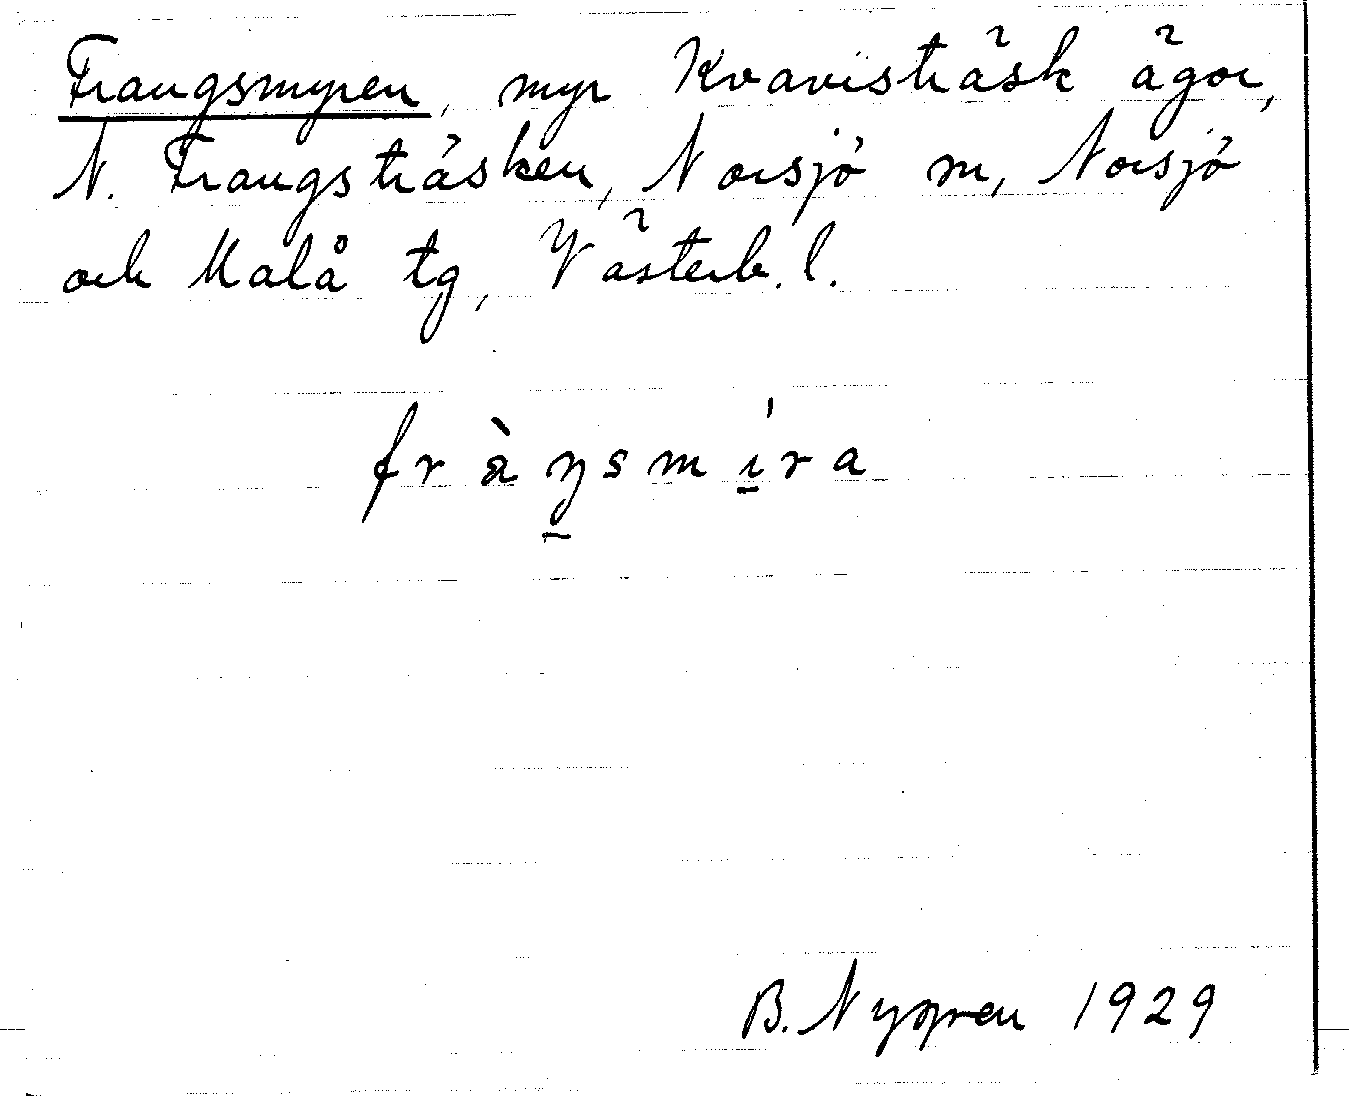 Frangsmyren, myr Kvavisträsk ägor,
N. Frangsträsken, Norsjö sn, Norsjö
och Malå tg, Västerb. l.
fràŋsmı̱́ra
B. Nygren 1929